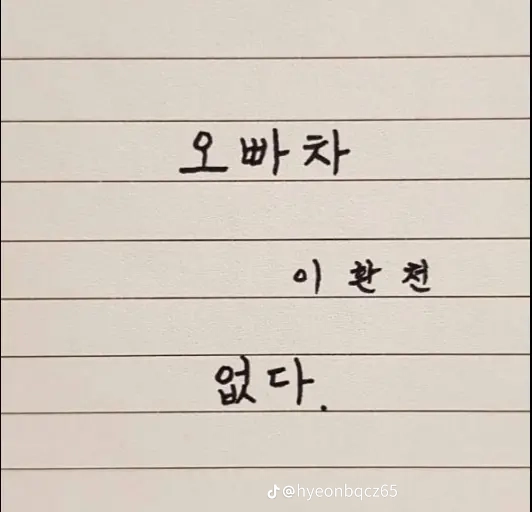 오빠차
이환천
없다.
@hyeonbqcz65